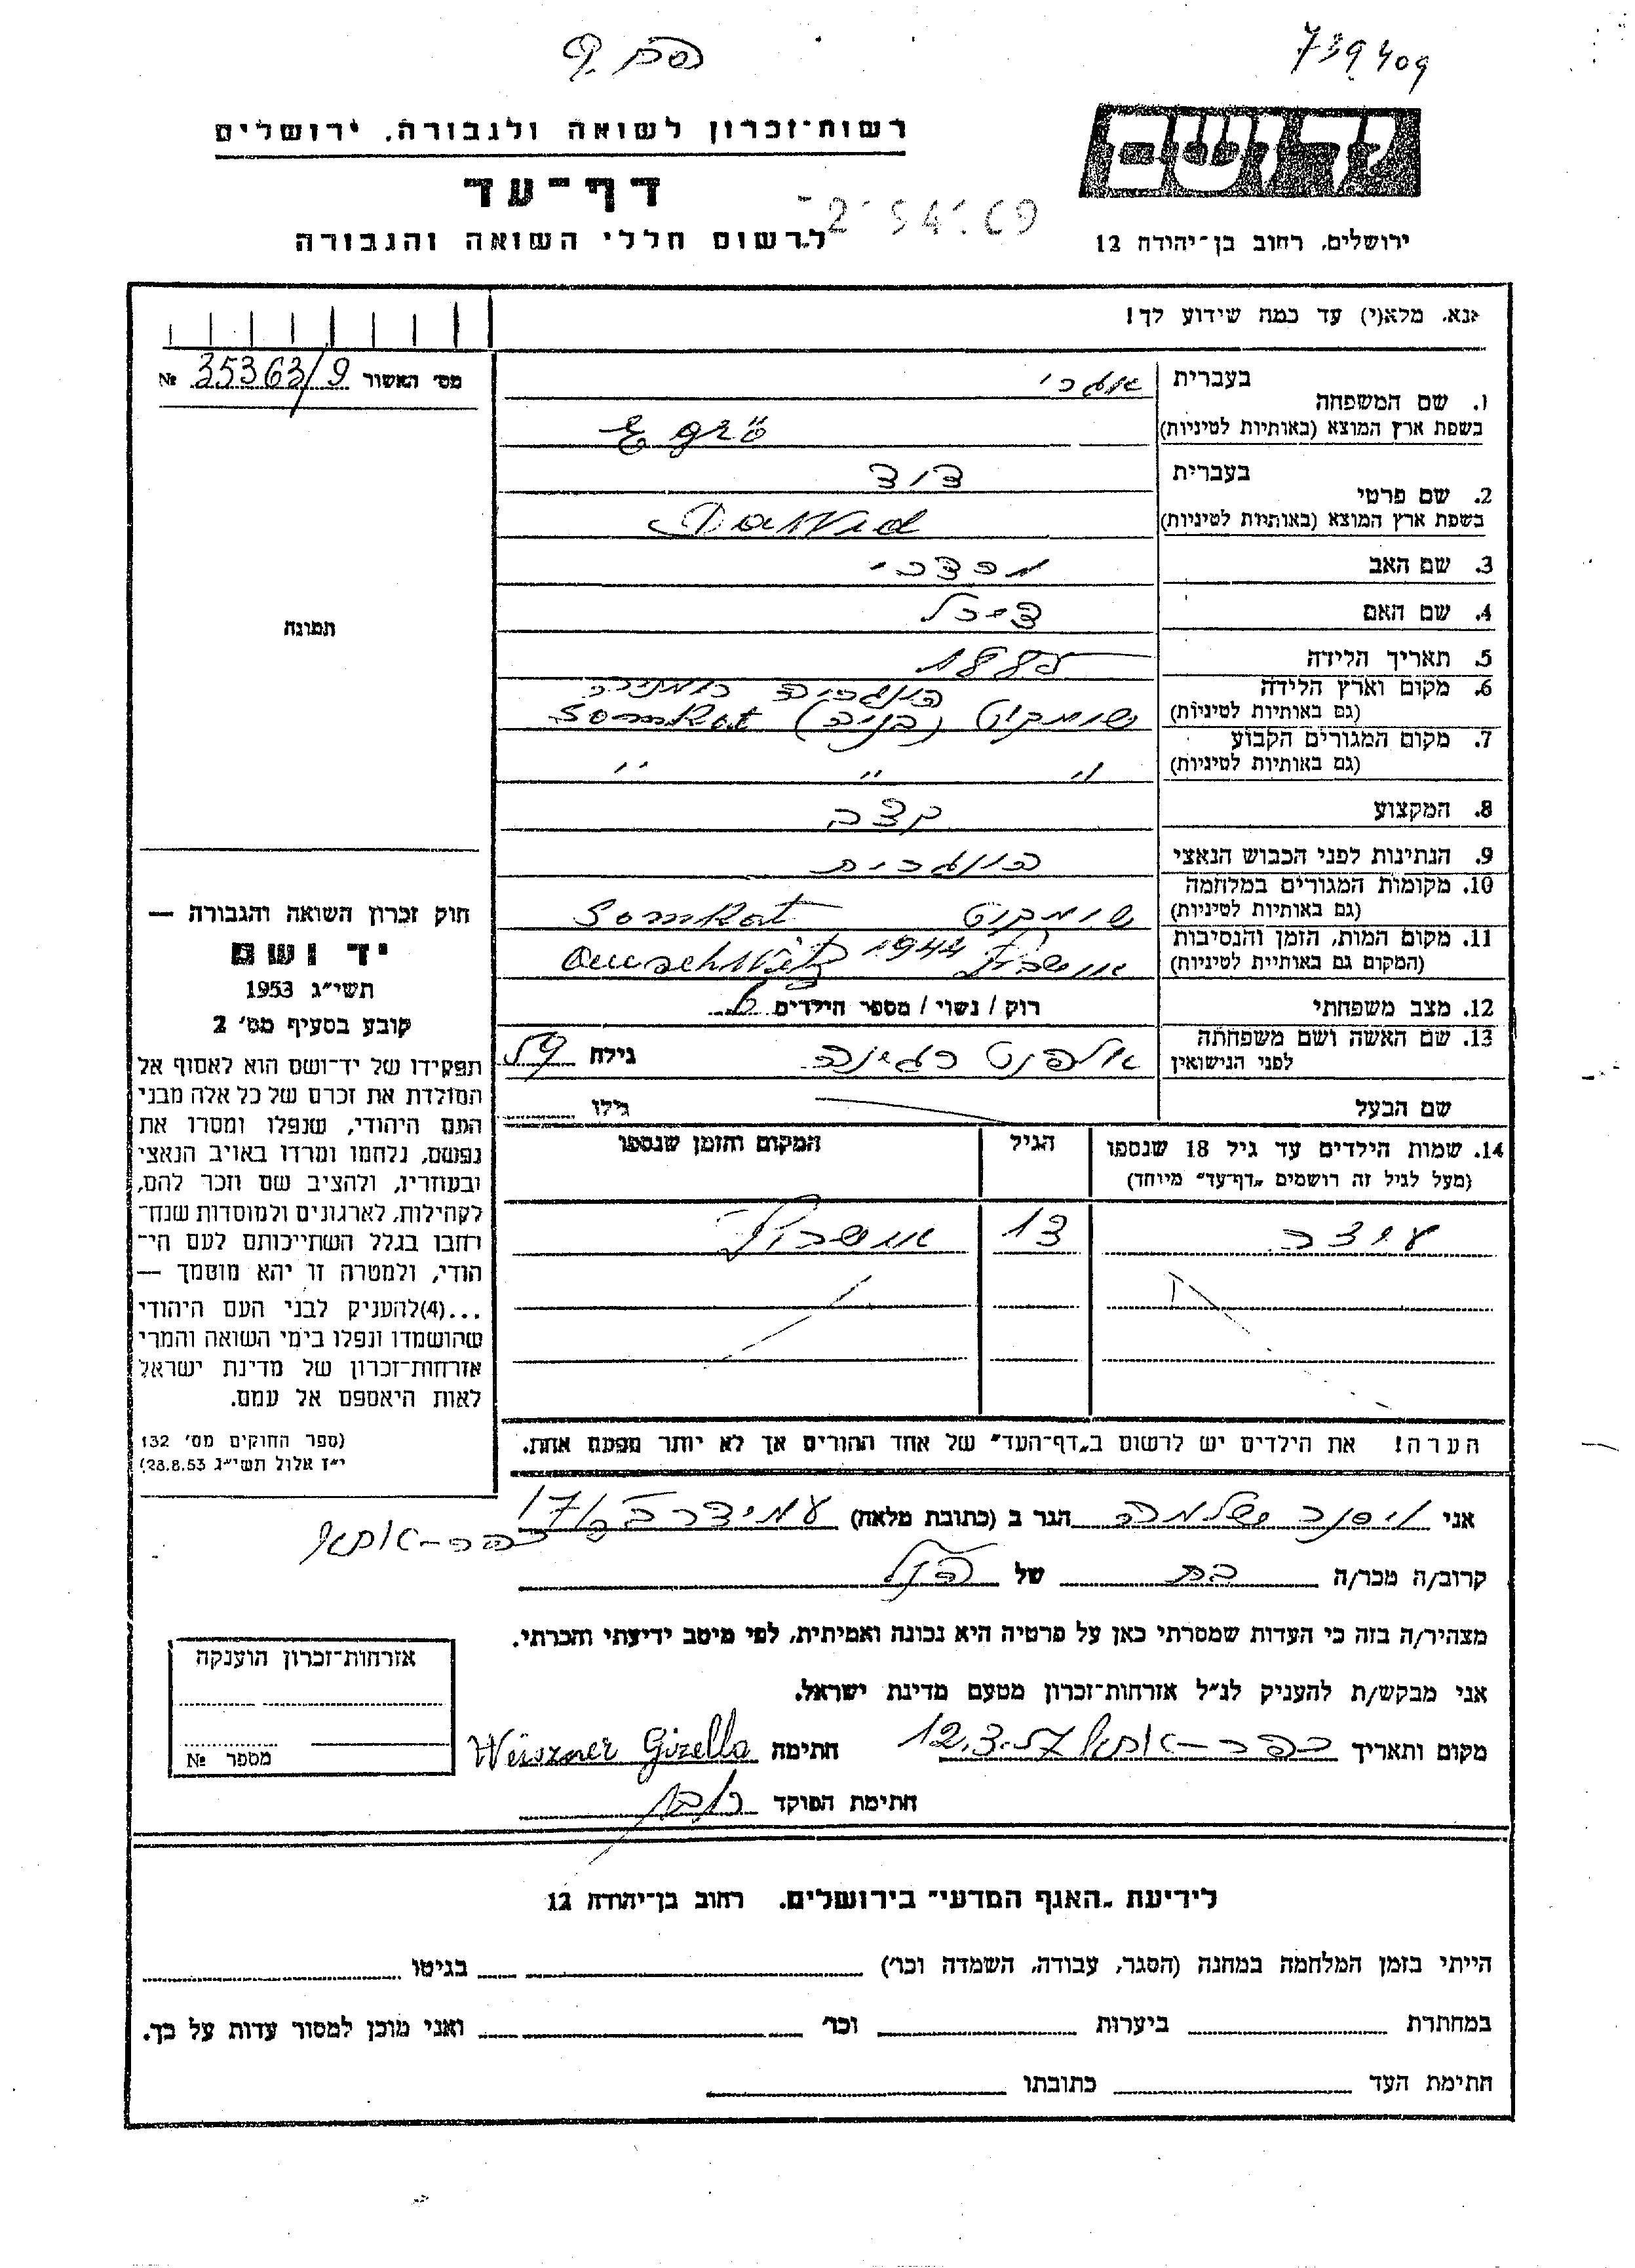 739409
רשות־זכרון לשואה ולגבורה, ירושלים
יד ושם
דף־עד
לרשום חללי השואה והגבורה
ירושלים, רחוב בן־יהודה 12
אנא, מלא(י) עד כמה שידוע לך!
מס׳ האשור 35363/9 №
1. שם המשפחה
בעברית אגרי
בשפת ארץ המוצא (באותיות לטיניות)
2. שם פרטי
בעברית דוד
בשפת ארץ המוצא (באותיות לטיניות)
3. שם האב מרדכי
4. שם האם
5. תאריך הלידה 1885
6. מקום וארץ הלידה
(גם באותיות לטיניות) שומקוט Somkot
7. מקום המגורים הקבוע
(גם באותיות לטיניות) " " "
8. המקצוע קצב
9. הנתינות לפני הכבוש הנאצי הונגרית
10. מקומות המגורים במלחמה
(גם באותיות לטיניות) שומקוט Somkot
11. מקום המות, הזמן והנסיבות
(המקום גם באותיות לטיניות) אושביץ 1944
12. מצב משפחתי רוק / נשוי / מספר הילדים
13. שם האשה ושם משפחתה
לפני הנישואין רגינה גילה
שם הבעל גילו
14. שמות הילדים עד גיל 18 שנספו הגיל המקום והזמן שנספו
(מעל לגיל זה רושמים „דף־עד״ מיוחד)
13 אושביץ
הערה! את הילדים יש לרשום ב„דף־העד״ של אחד ההורים אך לא יותר מפעם אחת.
תמונה
חוק זכרון השואה והגבורה —
יד ושם
תשי״ג 1953
קובע בסעיף מס׳ 2
תפקידו של יד־ושם הוא לאסוף אל
המולדת את זכרם של כל אלה מבני
העם היהודי, שנפלו ומסרו את
נפשם, נלחמו ומרדו באויב הנאצי
ובעוזריו, ולהציב שם וזכר להם,
לקהילות, לארגונים ולמוסדות שנח־
רבו בגלל השתייכותם לעם הי־
הודי, ולמטרה זו יהא מוסמך —
...(4)להעניק לבני העם היהודי
שהושמדו ונפלו בימי השואה והמרי
אזרחות־זכרון של מדינת ישראל
לאות היאספם אל עמם.
(ספר החוקים מס׳ 132
י״ז אלול תשי״ג 28.8.53)
אני ויסנר שלמה הגר ב (כתובת מלאה) עמידר
כפר-אתא
קרוב/ה מכר/ה בת של הנ״ל
מצהיר/ה בזה כי העדות שמסרתי כאן על פרטיה היא נכונה ואמיתית, לפי מיטב ידיעתי והכרתי.
אני מבקש/ת להעניק לנ״ל אזרחות־זכרון מטעם מדינת ישראל.
מקום ותאריך כפר-אתא 12.3.57 חתימה Weiszner Gizella
חתימת הפוקד
אזרחות־זכרון הוענקה
מספר №
לידיעת „האגף המדעי״ בירושלים, רחוב בן־יהודה 12
הייתי בזמן המלחמה במחנה (הסגר, עבודה, השמדה וכר׳) בגיטו
במחתרת ביערות וכר׳ ואני מוכן למסור עדות על כך.
חתימת העד כתובתו